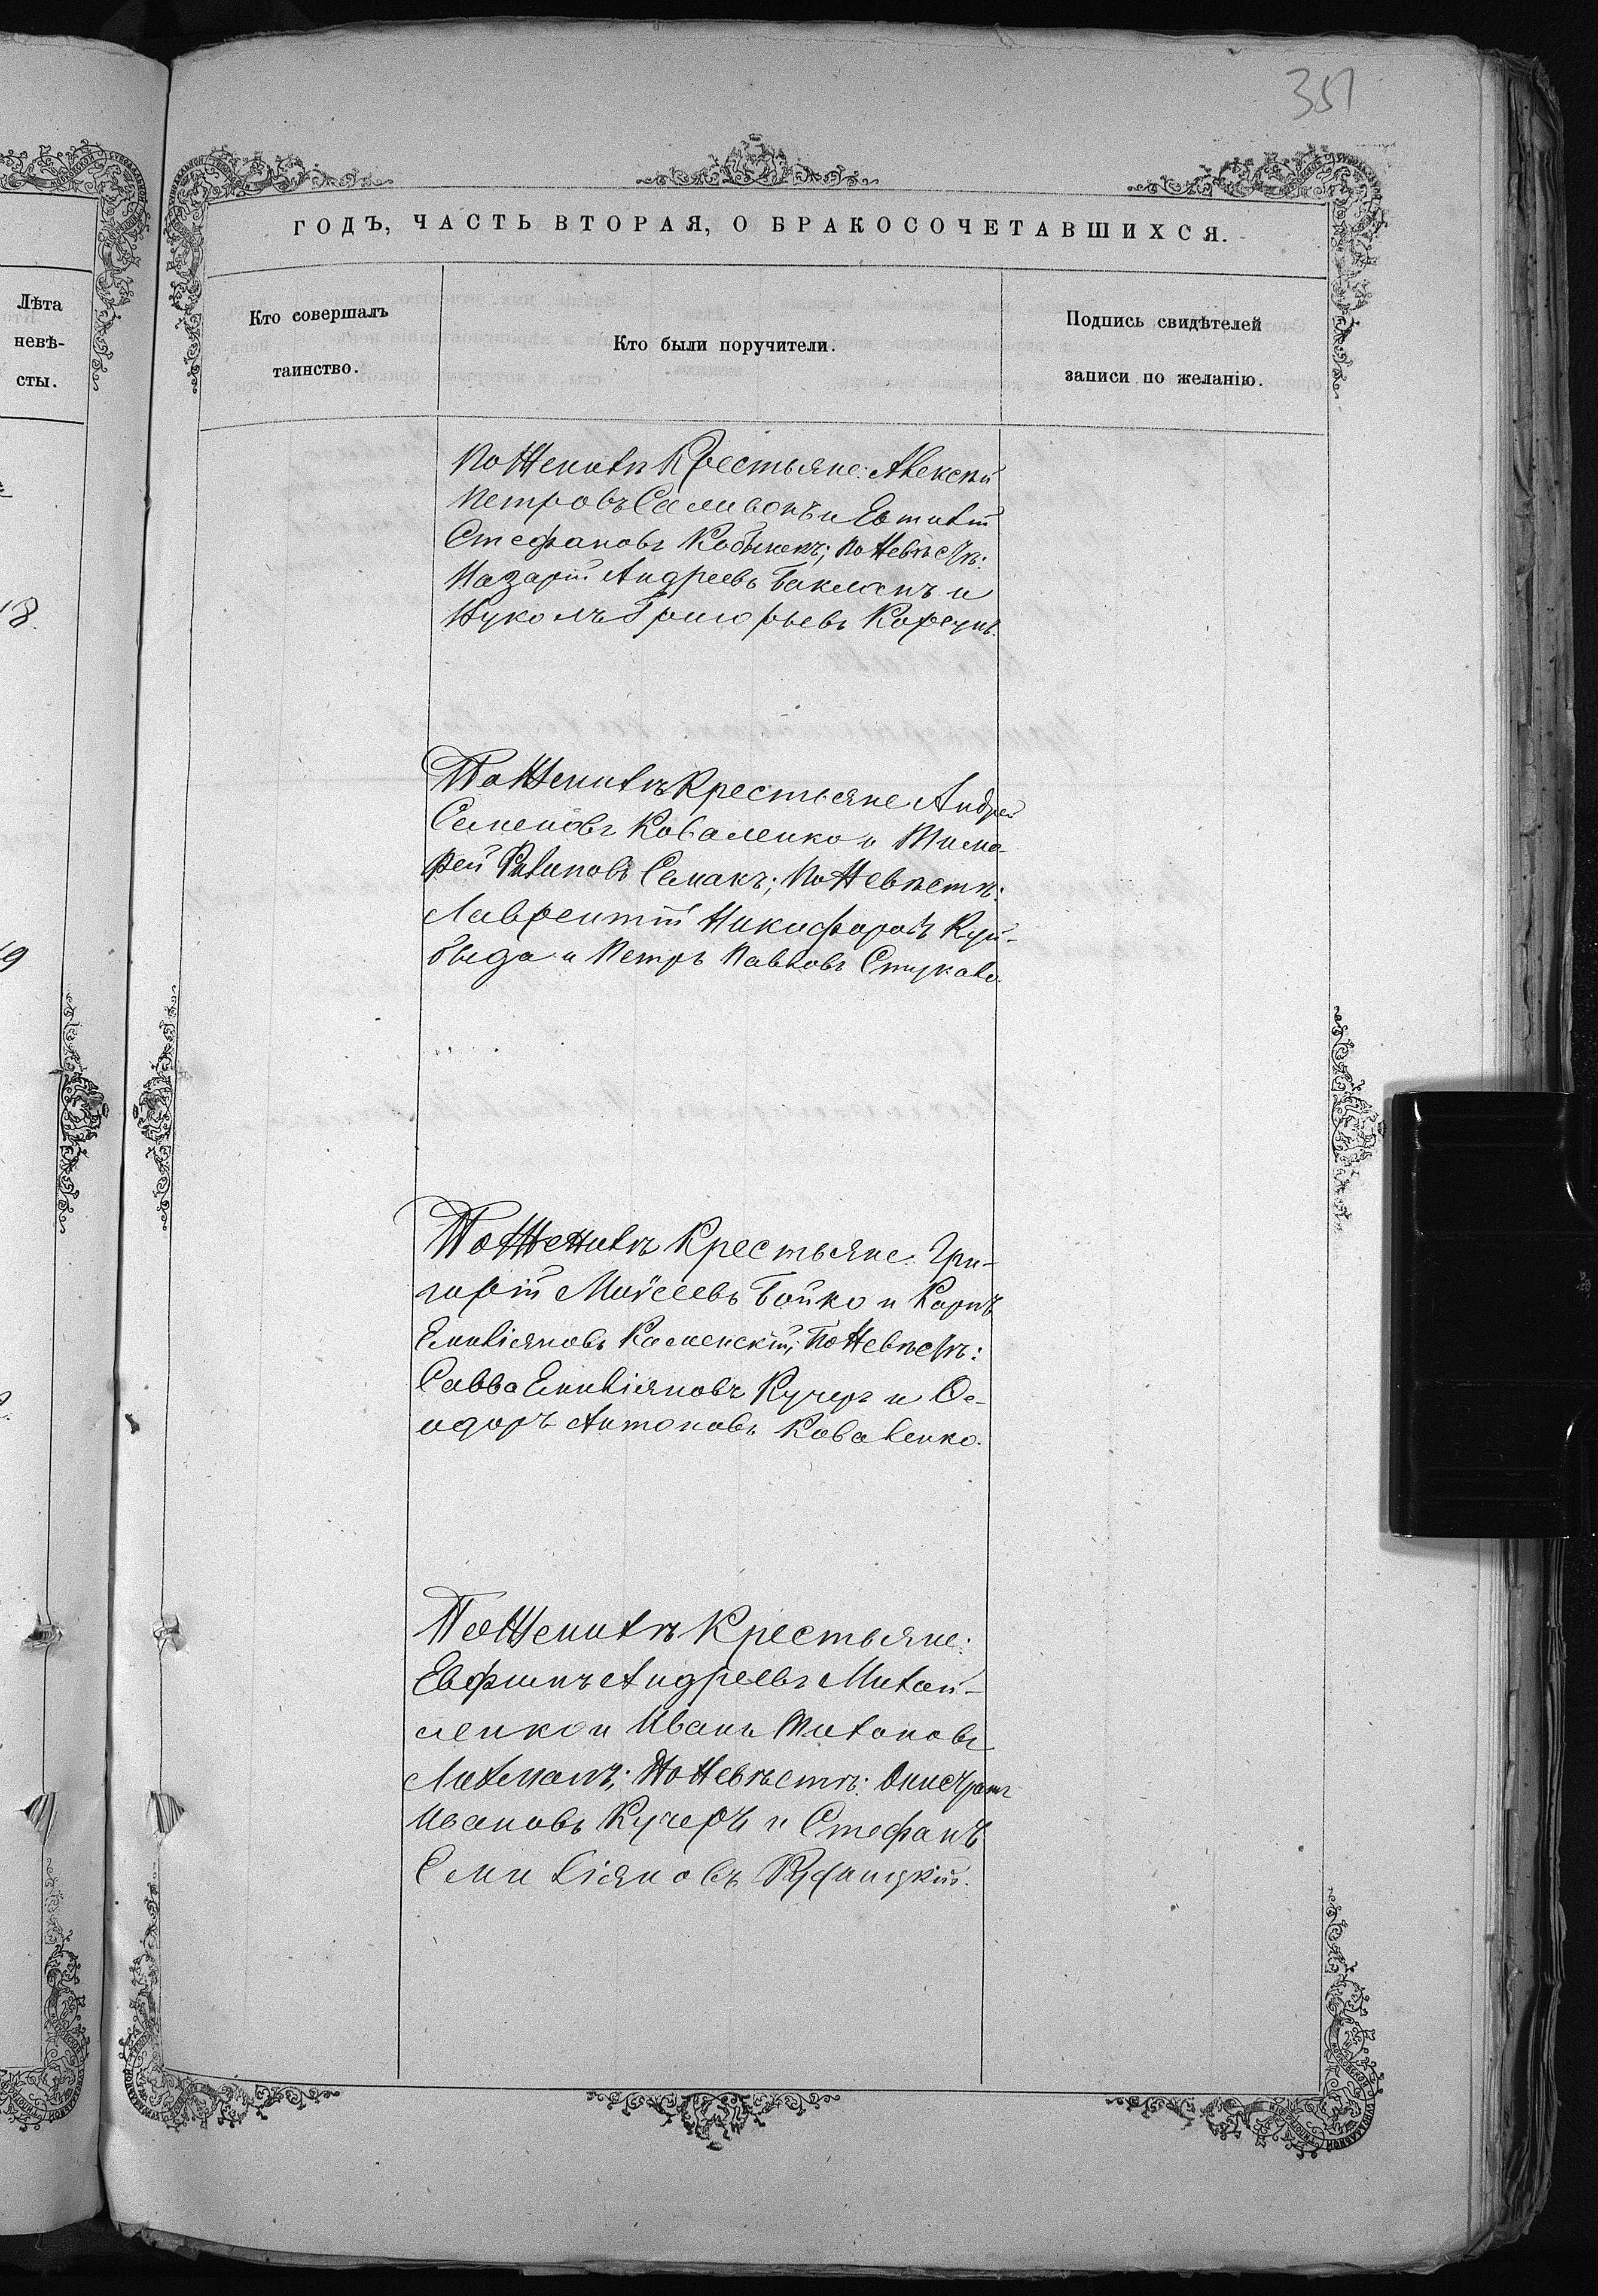 351
ГОДЪ, ЧАСТЬ ВТОРАЯ, О БРАКОСОЧЕТАВШИХСЯ.
Лѣта
невѣ-
сты.
Кто совершалъ
таинство.
Кто были поручители.
Подпись свидѣтелей
записи по желанію.
По Женихѣ Крестьяне: Алексѣй
Петровъ Саливонъ и Евтихій
Стефановъ; по Невѣстѣ:
Назарій Андреевъ Бакланъ и
Григорьевъ
По Женихѣ Крестьяне Андрей
Семеновъ Коваленко и Тимо-
фей Филиповъ Семакъ; по Невѣстѣ:
Лаврентій Никифоровъ Куй-
быда и Петръ Павловъ Стукало.
По Женихѣ Крестьяне: Гри-
горій Моѵсеевъ Бойко и Карпъ
Емиліяновъ Каменскій; по Невѣстѣ:
Савва Емиліяновъ Кучеръ и Ѳе-
одоръ Антоновъ Коваленко.
По Женихѣ Крестьяне:
Евфимъ Андреевъ Михай-
ленко и Иванъ Тихоновъ
Лахманъ; По Невѣстѣ:
Ивановъ Кучеръ и Стефанъ
Емиліяновъ